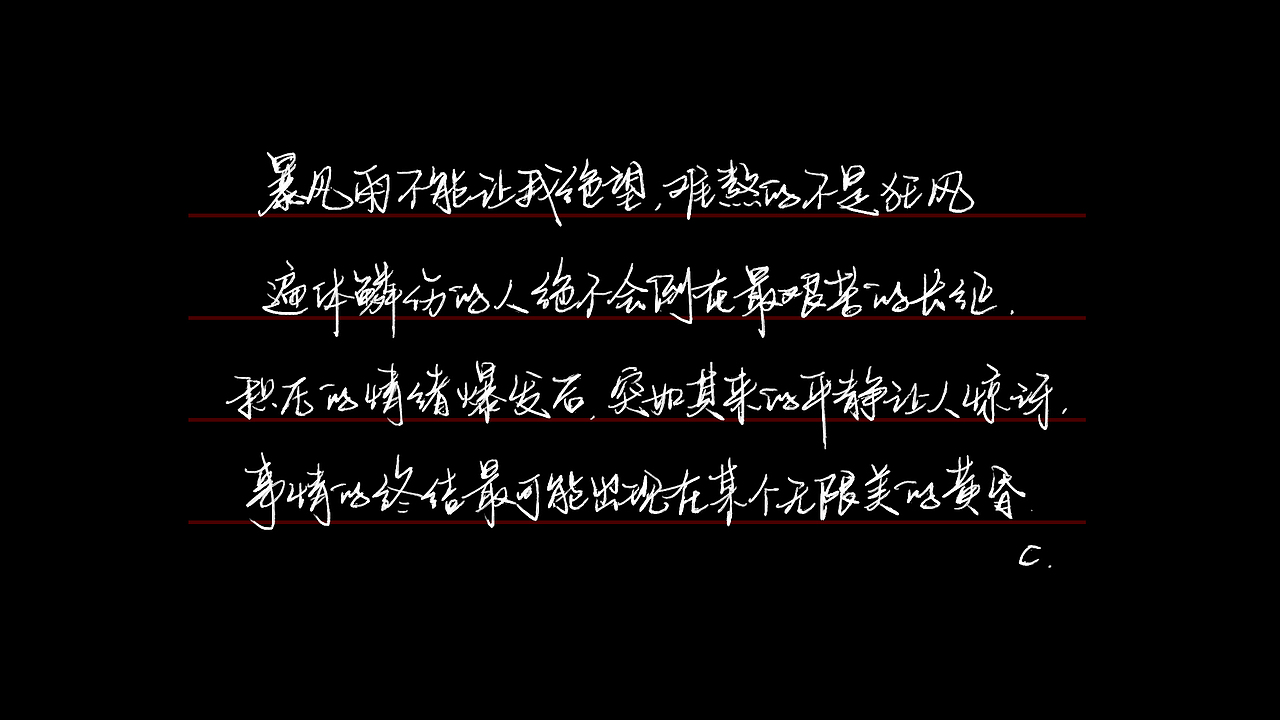 暴风雨不能让我绝望,难熬的不是狂风
遍体鳞伤的人绝不会倒在最艰苦的长征.
积压的情绪爆发后,突如其来的平静让人惊讶,
事情的终结最可能出现在某个无限美的黄昏.
C.